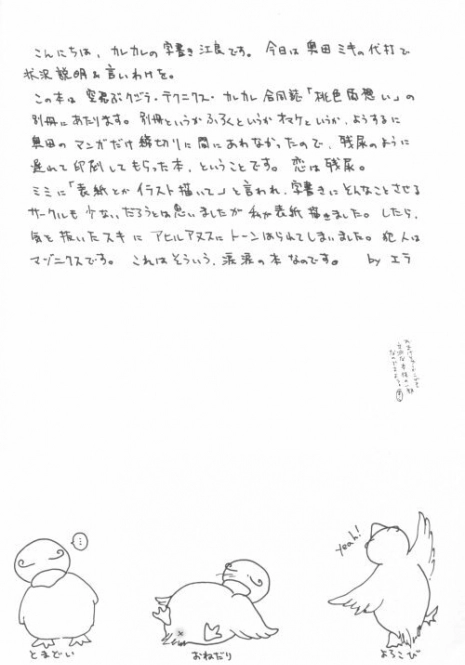 こんにちは、カレカレの字書き江良です。今日は奥田ミキの代打で
状況説明&言いわけを。
この本は空君ぶクジラ・テクニクス・カレカレ合同誌「桃色片想い」の
別冊にあたります。別冊というかふろくというかオマケというか、ようするに
奥田のマンガだけ締切りに間にあわなかったので、残尿のように
遅れて印刷してもらった本、ということです。恋は残尿。
ミミに「表紙とかイラスト描いて」と言われ、字書きにそんなことさせる
サークルも少ないだろうとは思いましたが私が表紙描きました。したら、
気を抜いたスキにアヒルアヌスにトーンはられてしまいました。犯人は
マゾニクスです。これはそういう、涙涙の本なのです。 by エラ
…
Yeah!
とまどい
おねだり
よろこび